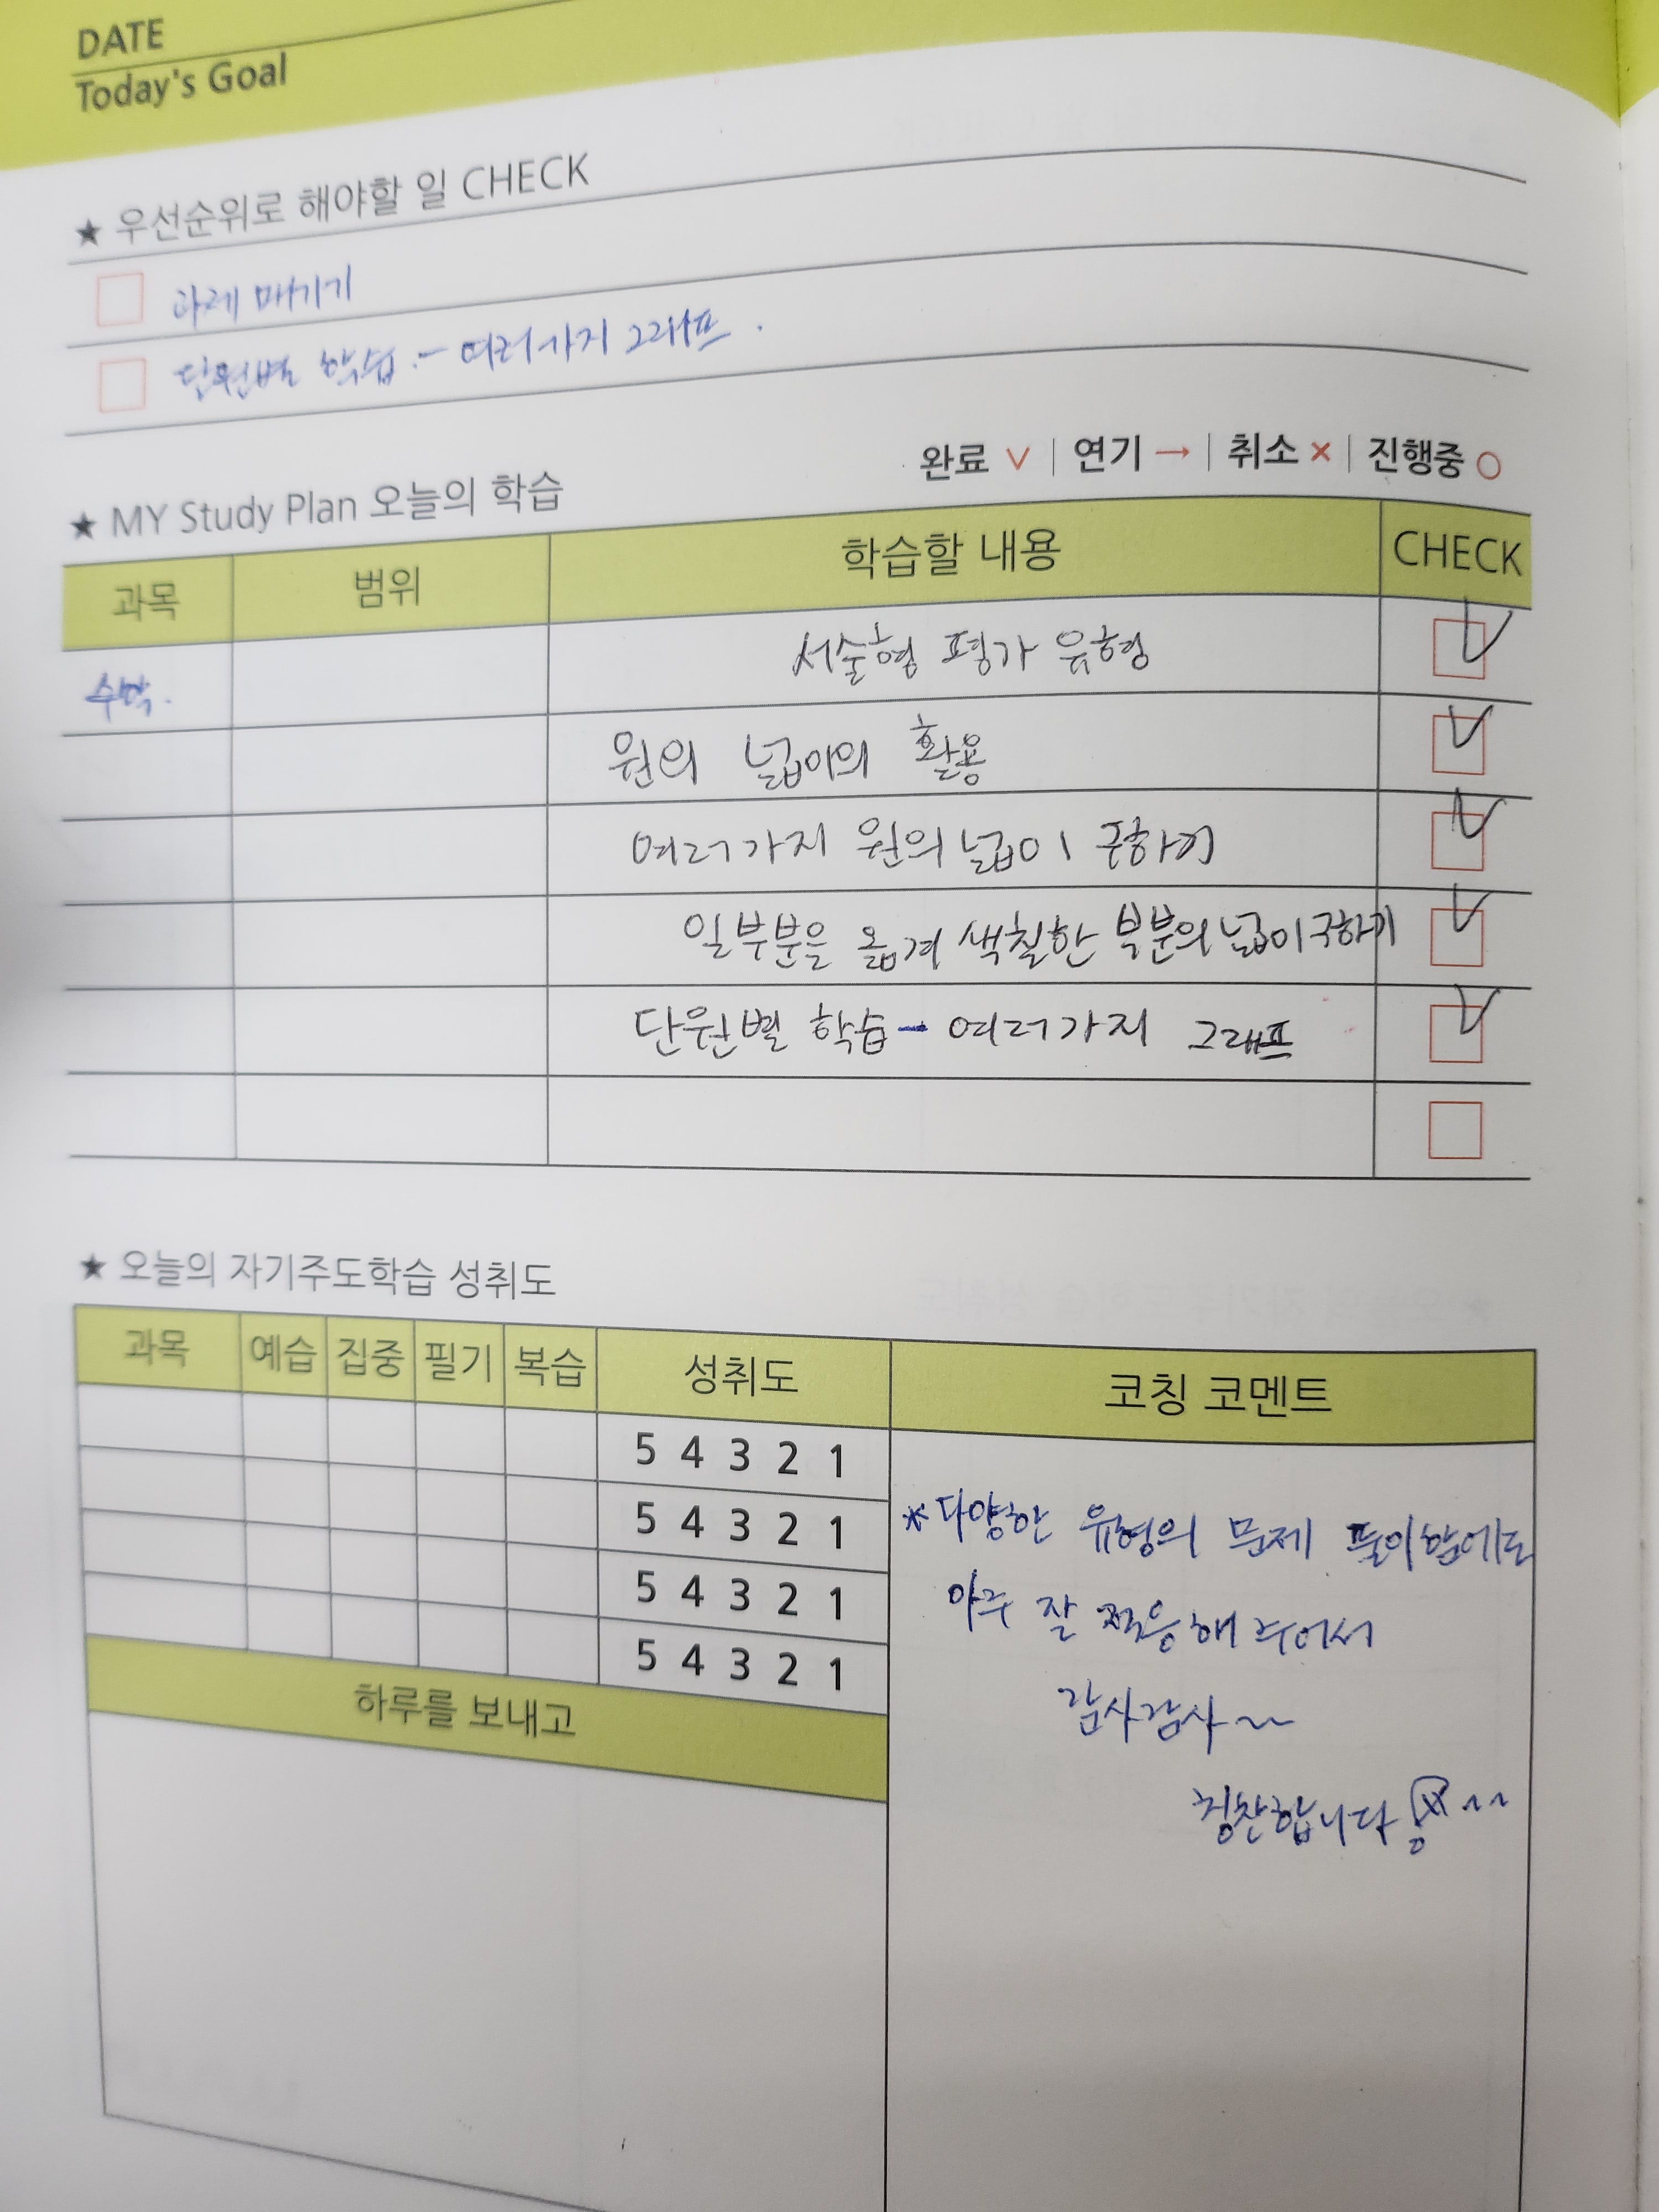 DATE
Today's Goal
★ 우선순위로 해야할 일 CHECK
과제 매기기
단원별 학습 - 여러가지 그래프.
완료 ∨ | 연기 → | 취소 × | 진행중 ○
★ MY Study Plan 오늘의 학습
과목 범위 학습할 내용 CHECK
수학. 서술형 평가 유형
원의 넓이의 활용
여러가지 원의 넓이 구하기
일부분을 옮겨 색칠한 부분의 넓이구하기
단원별 학습 - 여러가지 그래프
★ 오늘의 자기주도학습 성취도
과목 예습 집중 필기 복습 성취도 코칭 코멘트
5 4 3 2 1
5 4 3 2 1
5 4 3 2 1
5 4 3 2 1
하루를 보내고
*다양한 유형의 문제 풀이함에도
아주 잘 적응해 주어서
감사감사~
칭찬합니다